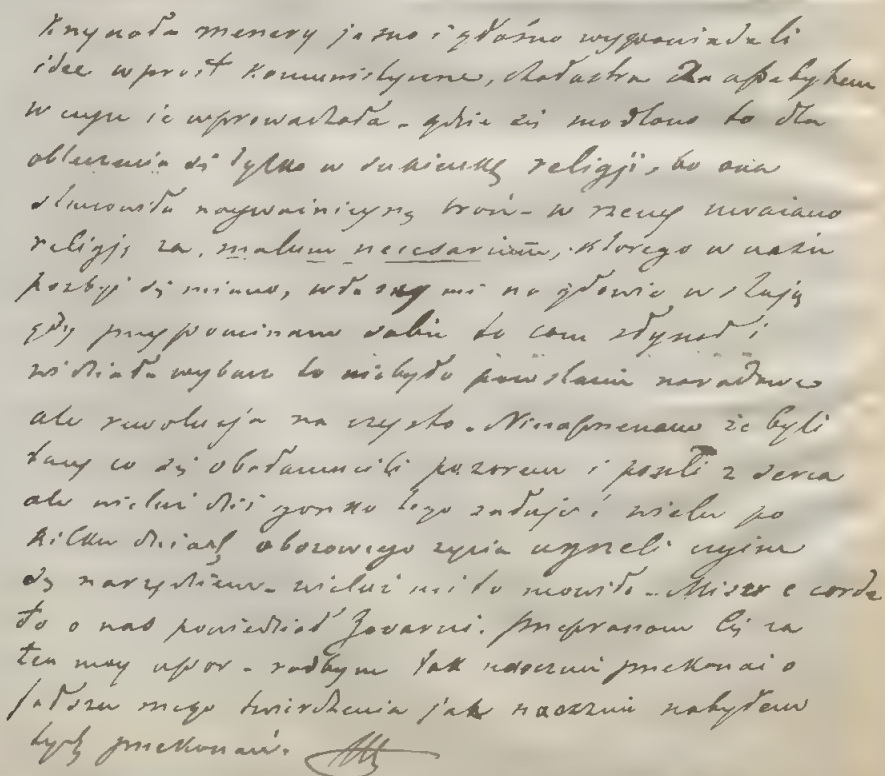 menery jasno i głośno wypowiadali
idee wprost komunistyczne, za
w czyn je wprowadzała - gdzie zaś modlono to dla
obleczenia się tylko w sukienkę religji, bo ona
stanowiła naywazniejszą broń - w rzeczy uwazano
religję za malum neccesarium, ktorego w
pozbyć się miano, włosy mi na głowie wstają
gdy przypominam sobie to com słyszał i
widział wybacz to niebyło powstanie narodowe
ale rewolucja na czysto. Nieza że byli
tacy co się obałamucili pozorem i poszli z serca
ale wielu dziś gorzko tego żałuje i wielu po
kilku dniach obozowego zycia uyzreli czyim
są narzędziem - wielu mi to mowiło - Misere corde
to o nas powiedział Przepraszam Cię za
ten moy upor - radbym tak naocznie przekonać o
fałszu mego twierdzenia jak naocznie nabyłem
tych przekonań.